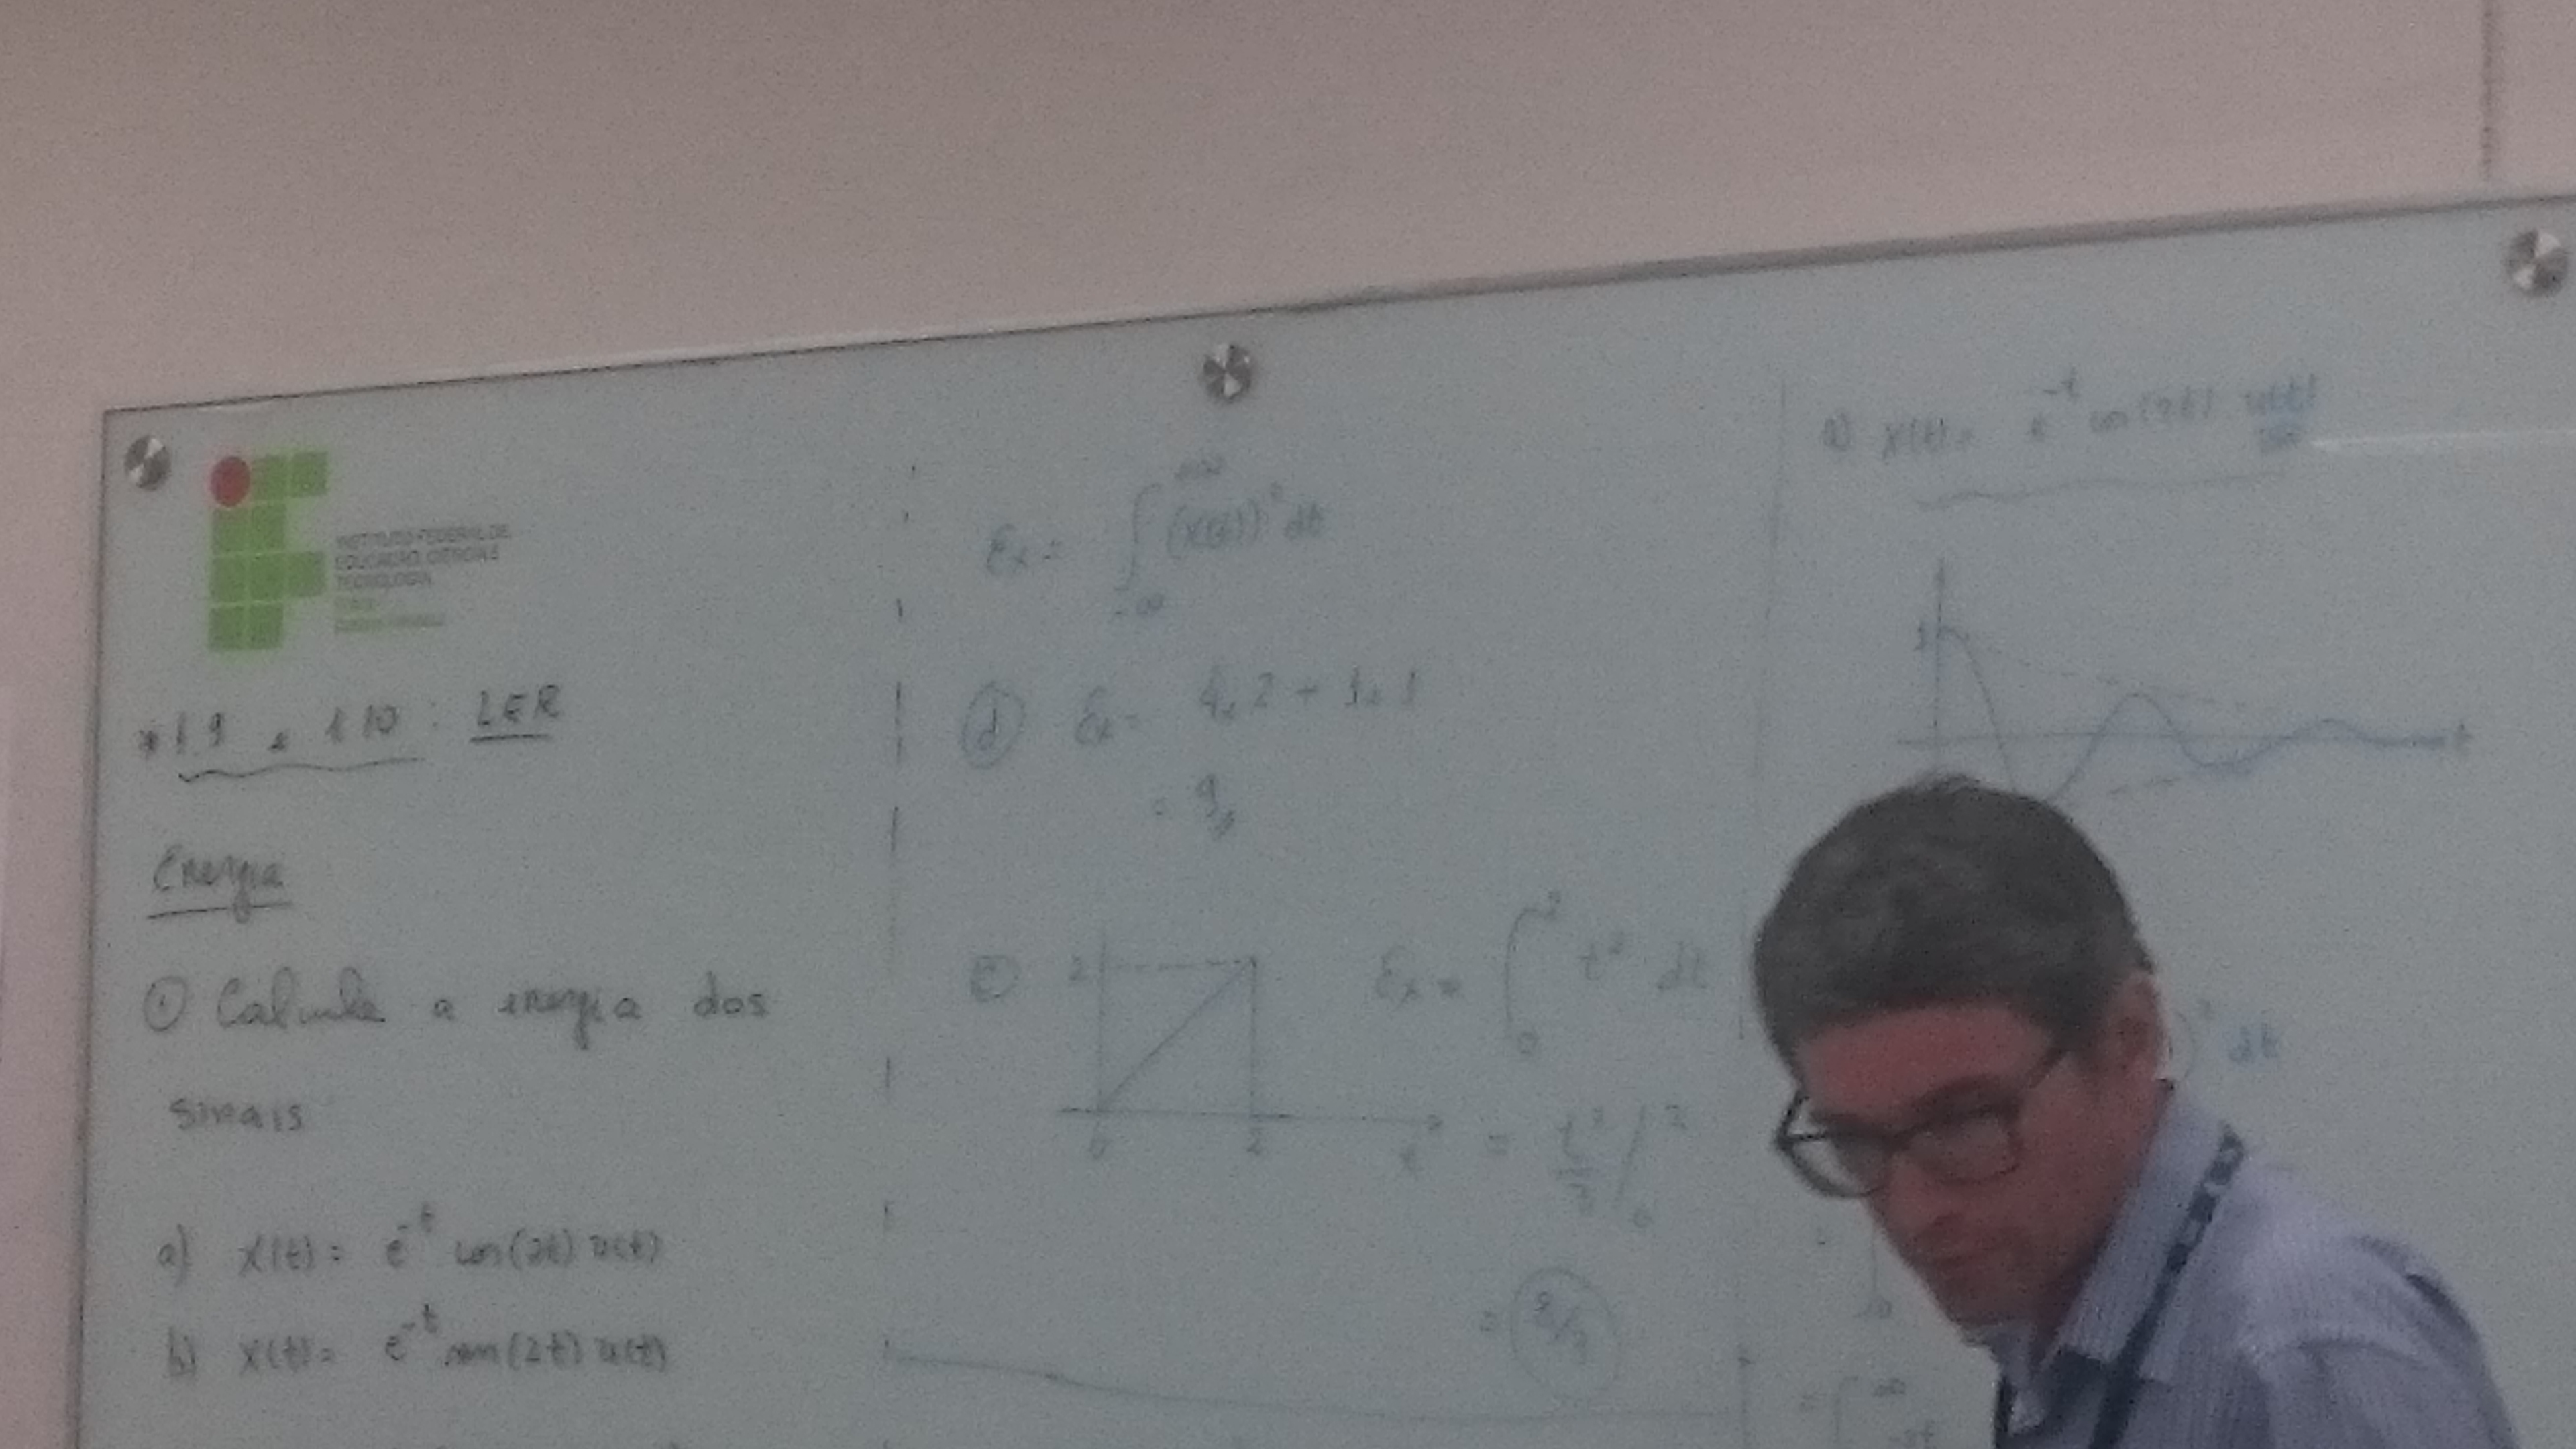 INSTITUTO FEDERAL DE
EDUCAÇÃO, CIÊNCIA E
TECNOLOGIA
* 1.9 e 1.10 : LER
Energia
① Calcule a energia dos
sinais
a) x(t) = e^-t cos(2t) u(t)
b) x(t) = e^-t sen(2t) u(t)
Ex = ∫_-∞^+∞ (x(t))² dt
(d) Ex = 4x2 + 1x1
= 9
2
0 2 t
Ex = ∫_0^2 t² dt
= t³/3 /_0^2
= 8/3
a) x(t) = e^-t cos(2t) u(t)
1
t
)² dt
= ∫^∞